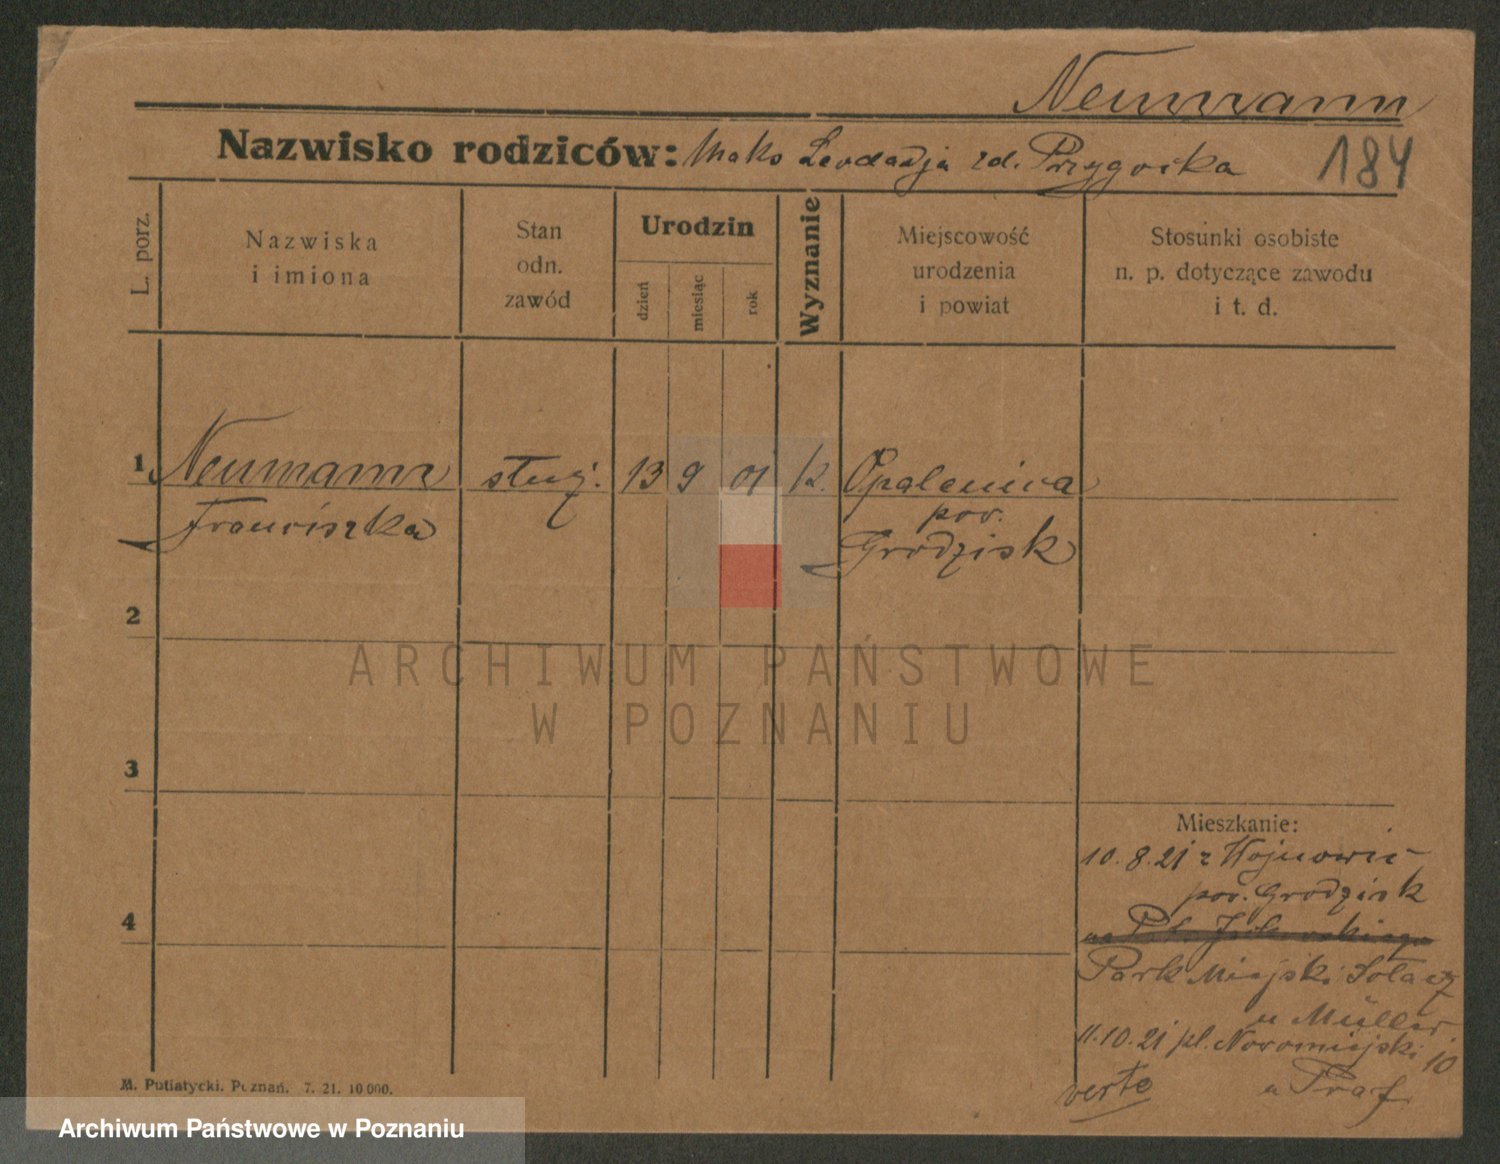 Neumann
Nazwisko rodziców: Maks Leodadja zd. Przygocka 184
L. porz.
Nazwiska
i imiona
Stan
odn.
zawód
Urodzin
dzień
miesiąc
rok
Wyznanie
Miejscowość
urodzenia
i powiat
Stosunki osobiste
n. p. dotyczące zawodu
i t. d.
1 Neumann służ. 13 9 01 k. Opalenica
Franciszka pow.
Grodzisk
2
3
4
Mieszkanie:
10.8.21 z Wojnowic
pow. Grodzisk
na
Park Miejski Sołacz
u Müller
11.10.21 pl. Nowomiejski 10
u Praf.
verte
M. Putiatycki. Poznań. 7. 21. 10 000.
ARCHIWUM PAŃSTWOWE
W POZNANIU
Archiwum Państwowe w Poznaniu